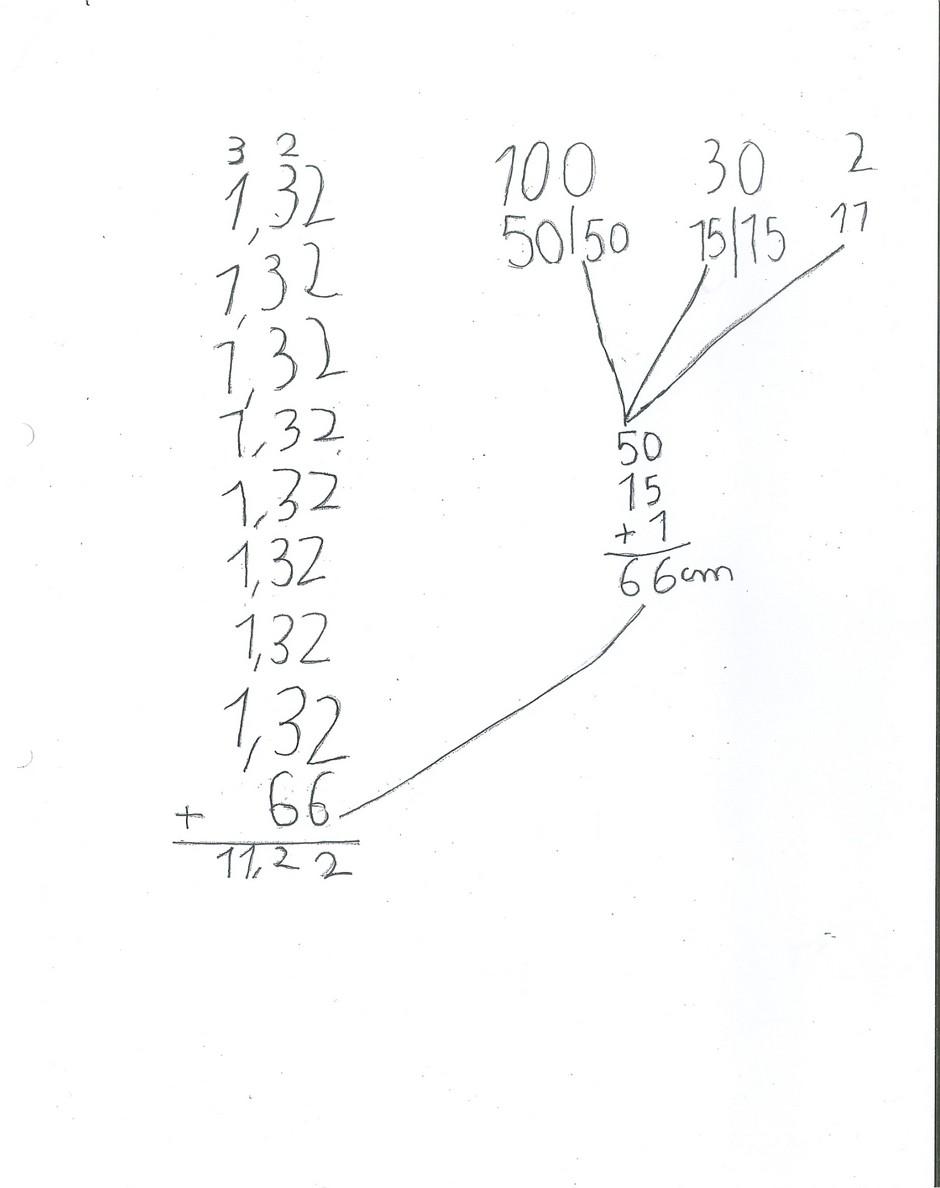 3 2
1,32
1,32
1,32
1,32
1,32
1,32
1,32
1,32
+ 66
11,22
100 30 2
50|50 15|15 11
50
15
+ 1
66cm